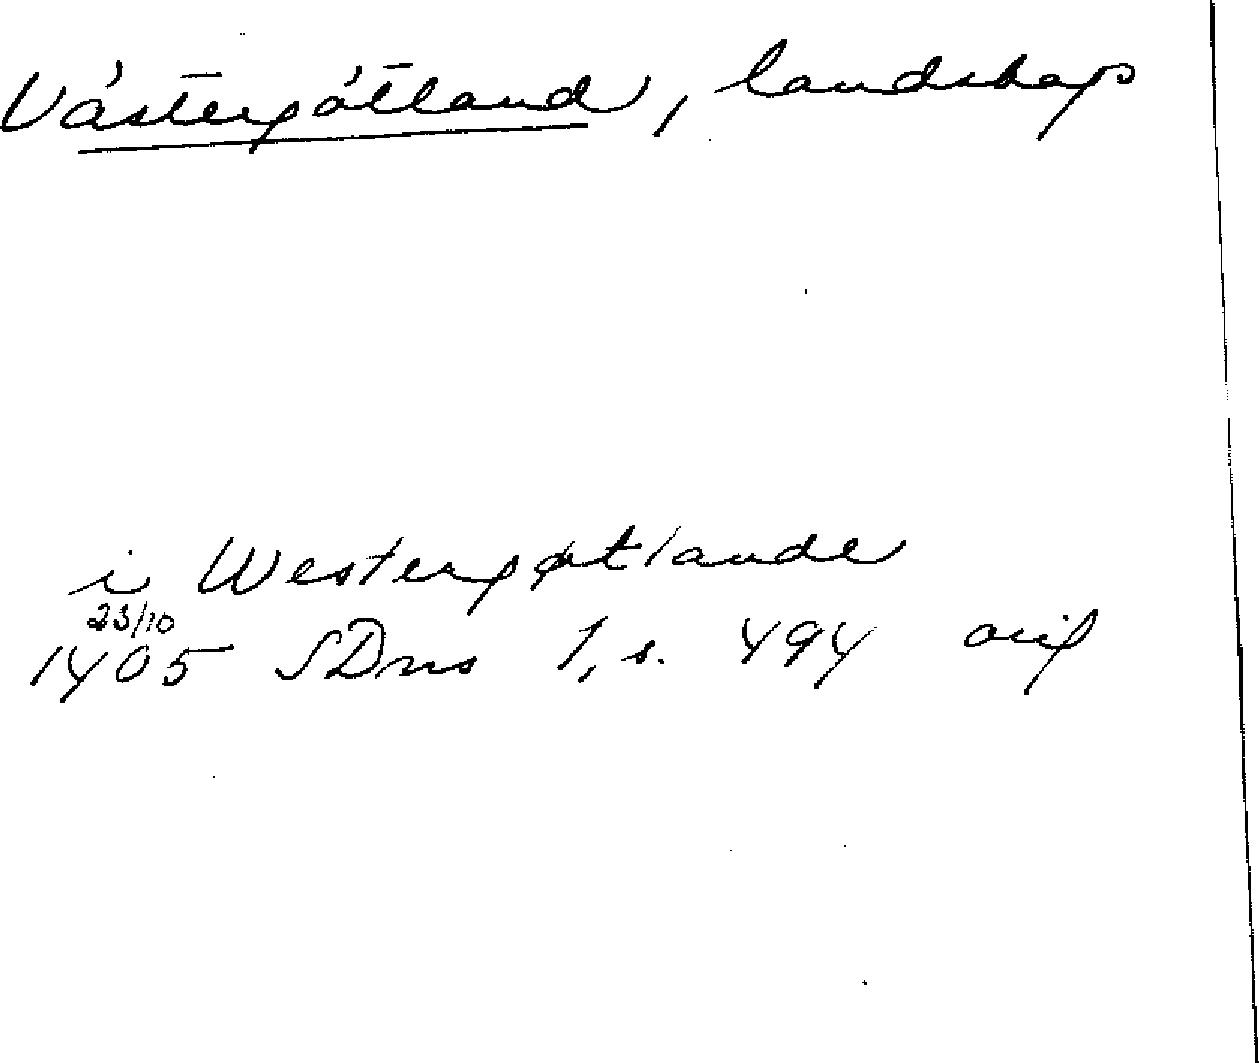 Västergötland, landskap
i Westergøtlande
23/10
1405 SDns 1, s. 494 orig